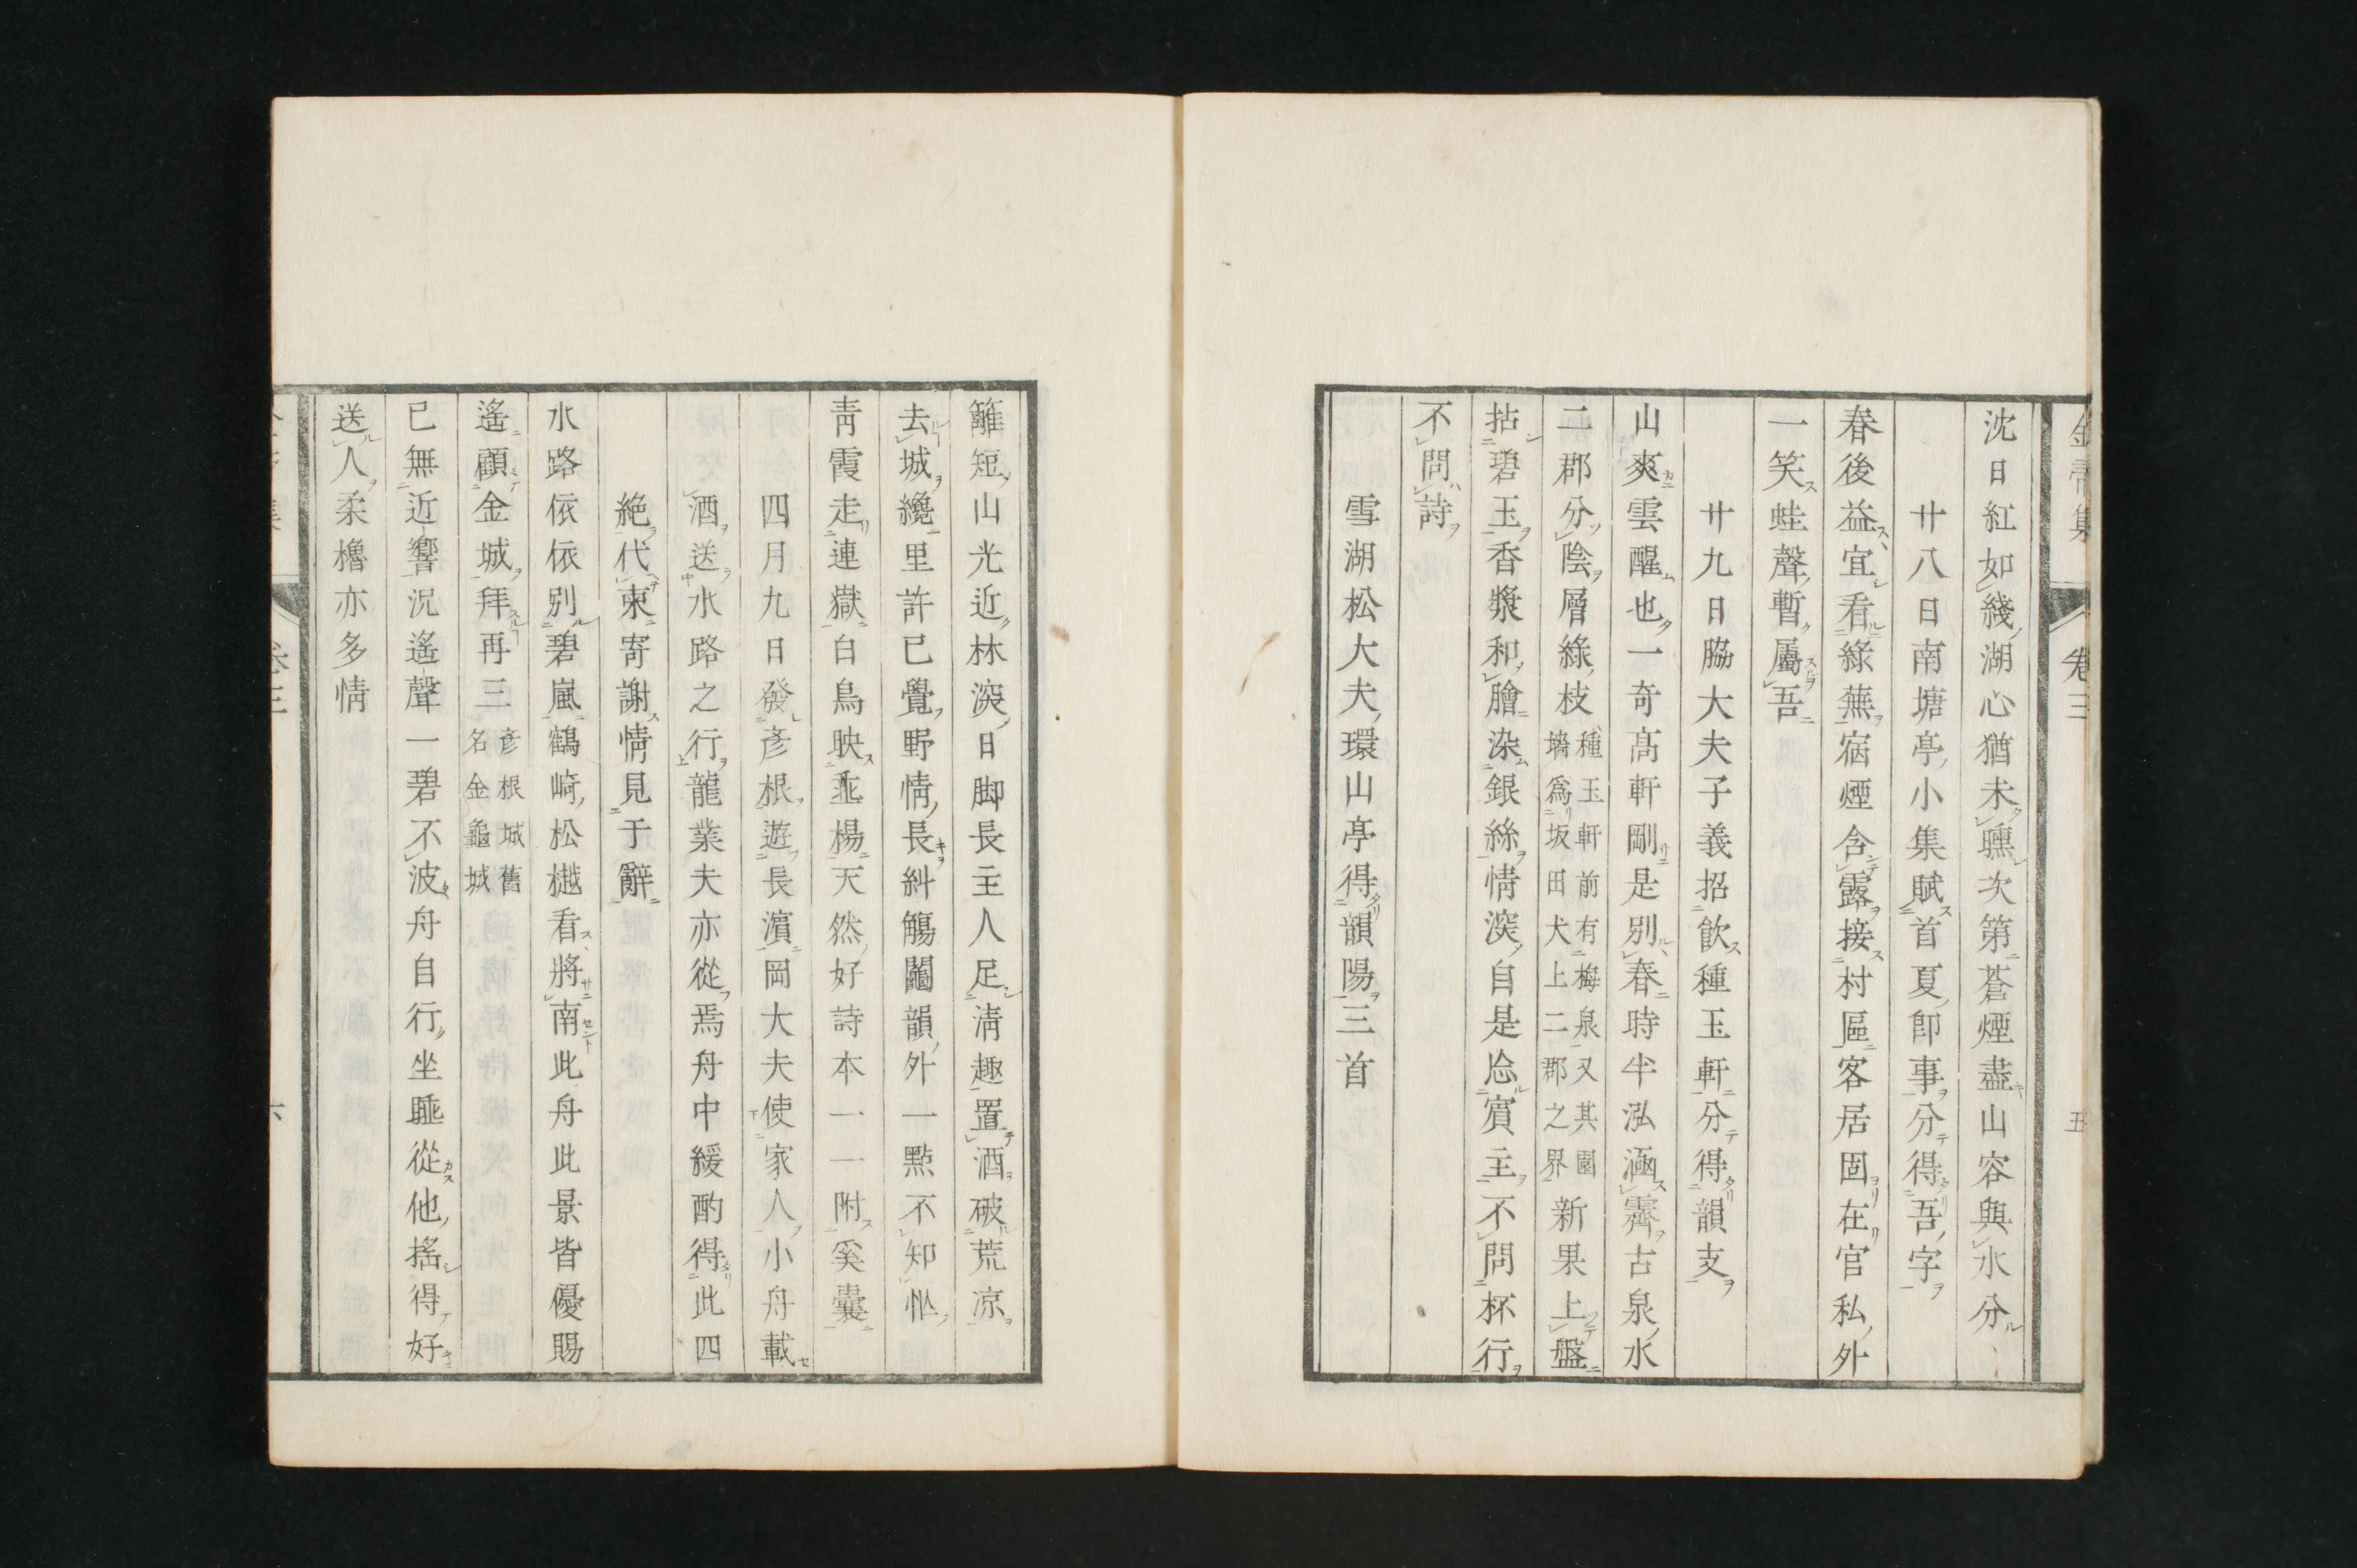 沈日紅如綫湖心猶未曛次第蒼煙盡山容與水分
廿八日南塘亭小集賦首夏卽事分得吾字
春後益宜看綠蕪宿煙含露接村區客居固在官私外
一笑蛙聲暫屬吾
廿九日脇大夫子義招飮種玉軒分得韻支
山爽雲醒也一奇高軒剛是別春時半泓涵霽古泉水
二郡分陰層綠枝
種玉軒前有梅泉又其園
墻爲坂田犬上二郡之界
新果上盤
拈碧玉香漿和膾染銀絲情深自是忩賓主不問杯行
不問詩
雪湖松大夫環山亭得韻陽三首
卷三
五
籬短山光近林深日脚長主人足淸趣置酒破荒凉
去城纔里許已覺野情長糾觴鬮韻外一點不知忙
靑霞走連嶽白鳥映垂楊天然好詩本一一附奚囊
四月九日發彥根遊長濱岡大夫使家人小舟載
酒送水路之行龍業夫亦從焉舟中緩酌得此四
絶代柬寄謝情見于辭
水路依依別碧嵐鶴崎松樾看將南此舟此景皆優賜
遙顧金城拜再三
彥根城舊
名金龜城
已無近響況遙聲一碧不波舟自行坐睡從他搖得好
送人柔櫓亦多情